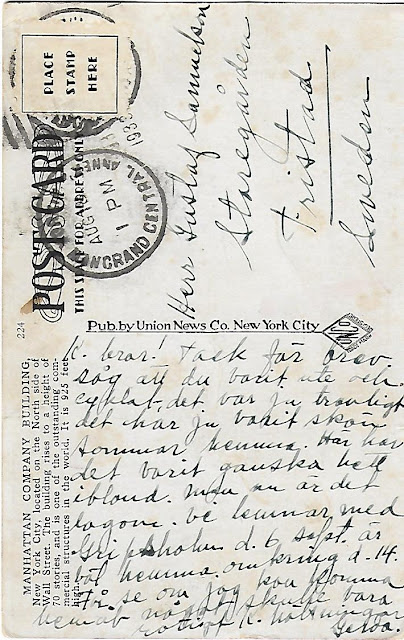 PLACE
STAMP
HERE
POST CARD
THIS SPACE FOR ADDRESS ONLY
GRAND CENTRAL ANNEX
AUG
1 PM
193
Herr Gustaf Samuelson
Storegården
Fristad
Sweden
224
MANHATTAN COMPANY BUILDING,
New York City, located on the North side of
Wall Street. The building rises to a height of
70 stories, and is one of the outstanding com-
mercial structures in the world. It is 925 feet
high.
Pub. by Union News Co. New York City
K. bror! Tack för brev
såg att du varit ute och
cyklat, det var ju trevligt
det har ju varit skön
sommar hemma. Här har
det varit ganska hett
ibland. men nu är det
lagom. vi lemnar med
Gripsholm d. 6 sept. är
väl hemma omkring d. 14.
Få se om jag kan komma
hemåt något skulle vara
K. hälsningar
Gerda.